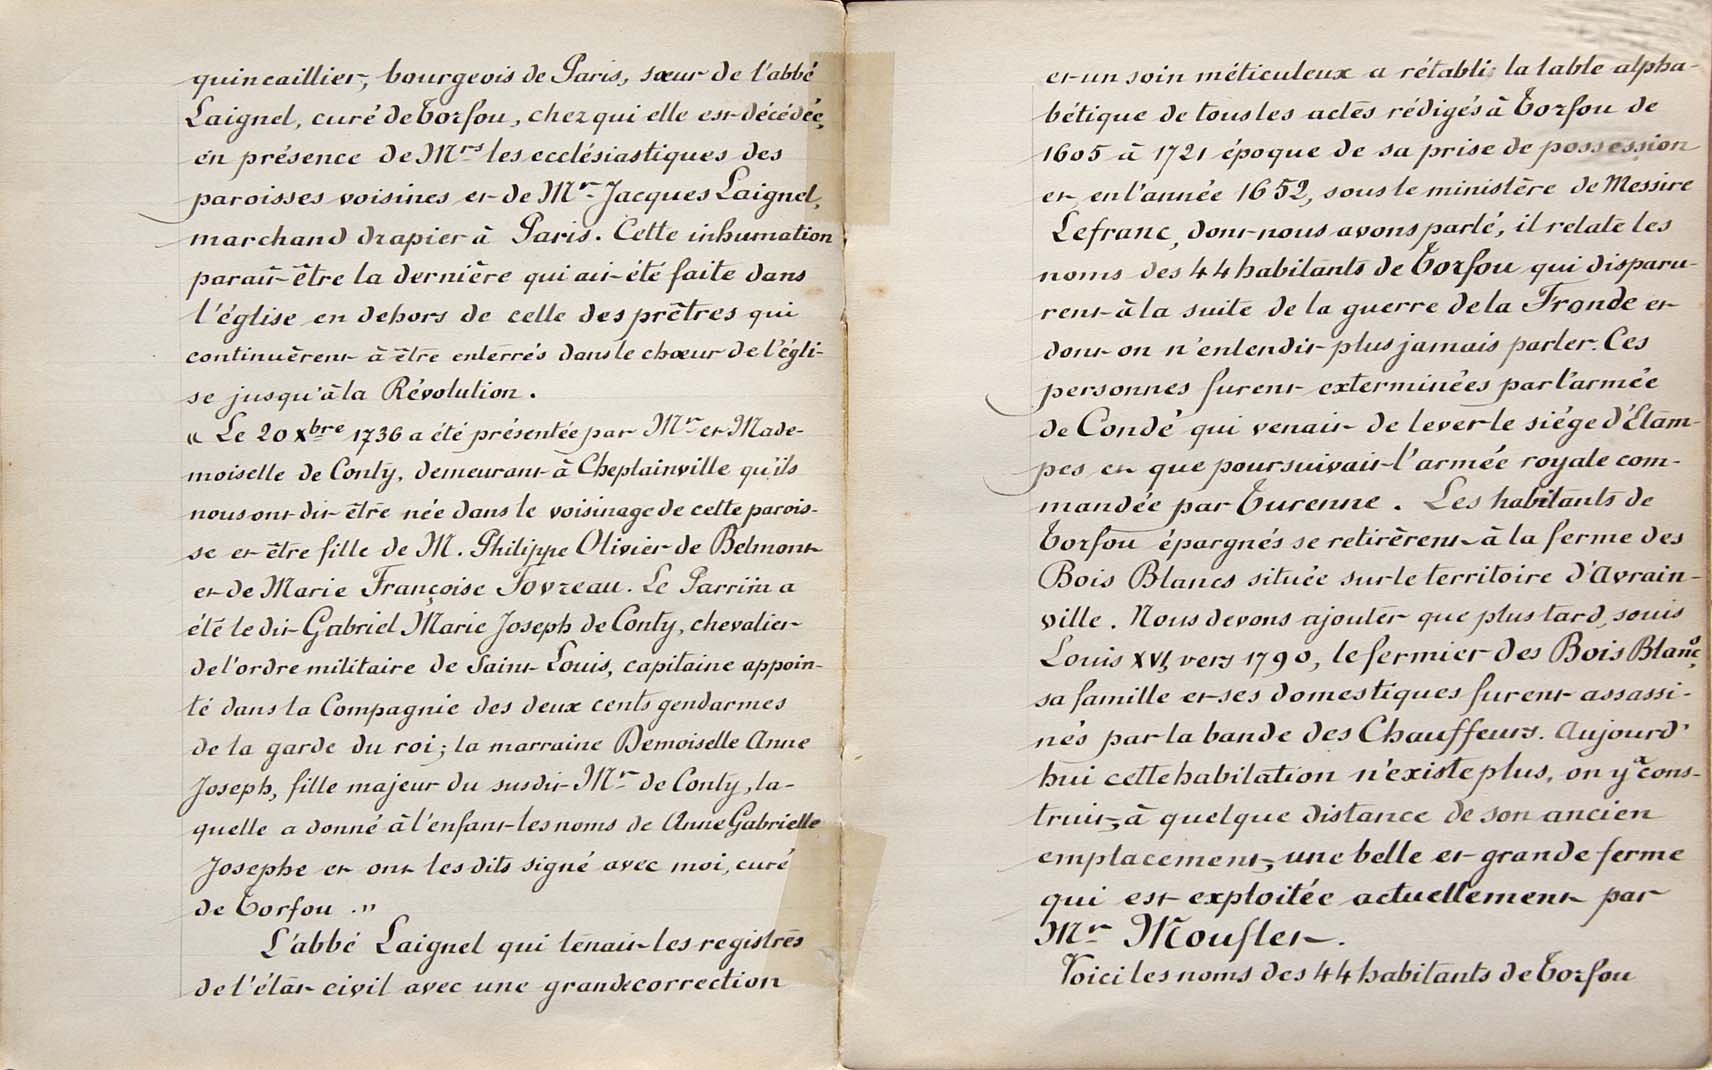 quincaillier, bourgeois de Paris, sœur de l'abbé
Laignel, curé de Torfou, chez qui elle est décédée,
en présence de Mrs les ecclésiastiques des
paroisses voisines et de Mr Jacques Laignel,
marchand drapier à Paris. Cette inhumation
paraît être la dernière qui ait été faite dans
l'église en dehors de celle des prêtres qui
continuèrent à être enterrés dans le chœur de l'égli-
se jusqu'à la Révolution.
« Le 20 Xbre 1736 a été présentée par Mr et Made-
moiselle de Conty, demeurant à Cheplainville qu'ils
nous ont dit être née dans le voisinage de cette parois-
se et être fille de M. Philippe Olivier de Belmont
et de Marie Françoise Fovreau. Le Parrin a
été le dit Gabriel Marie Joseph de Conty, chevalier
de l'ordre militaire de Saint Louis, capitaine appoin-
té dans la Compagnie des deux cents gendarmes
de la garde du roi; la marraine Demoiselle Anne
Joseph, fille majeur du susdit Mr de Conty, la-
quelle a donné à l'enfant les noms de Anne Gabrielle
Josephe et ont les dits signé avec moi, curé
de Torfou. »
L'abbé Laignel qui tenait les registres
de l'état civil avec une grande correction
et un soin méticuleux a rétabli la table alpha-
bétique de tous les actes rédigés à Torfou de
1605 à 1721 époque de sa prise de possession
et en l'année 1652, sous le ministère de Messire
Lefranc, dont nous avons parlé, il relate les
noms des 44 habitants de Torfou qui disparu-
rent à la suite de la guerre de la Fronde et
dont on n'entendit plus jamais parler. Ces
personnes furent exterminées par l'armée
de Condé qui venait de lever le siége d'Étam-
pes et que poursuivait l'armée royale com-
mandée par Turenne. Les habitants de
Torfou épargnés se retirèrent à la ferme des
Bois Blancs située sur le territoire d'Avrain-
ville. Nous devons ajouter que plus tard, sous
Louis XVI, vers 1790, le fermier des Bois Blancs,
sa famille et ses domestiques furent assassi-
nés par la bande des Chauffeurs. Aujourd'
hui cette habitation n'existe plus, on y a cons-
truit, à quelque distance de son ancien
emplacement, une belle et grande ferme
qui est exploitée actuellement par
Mr Mouflet.
Voici les noms des 44 habitants de Torfou